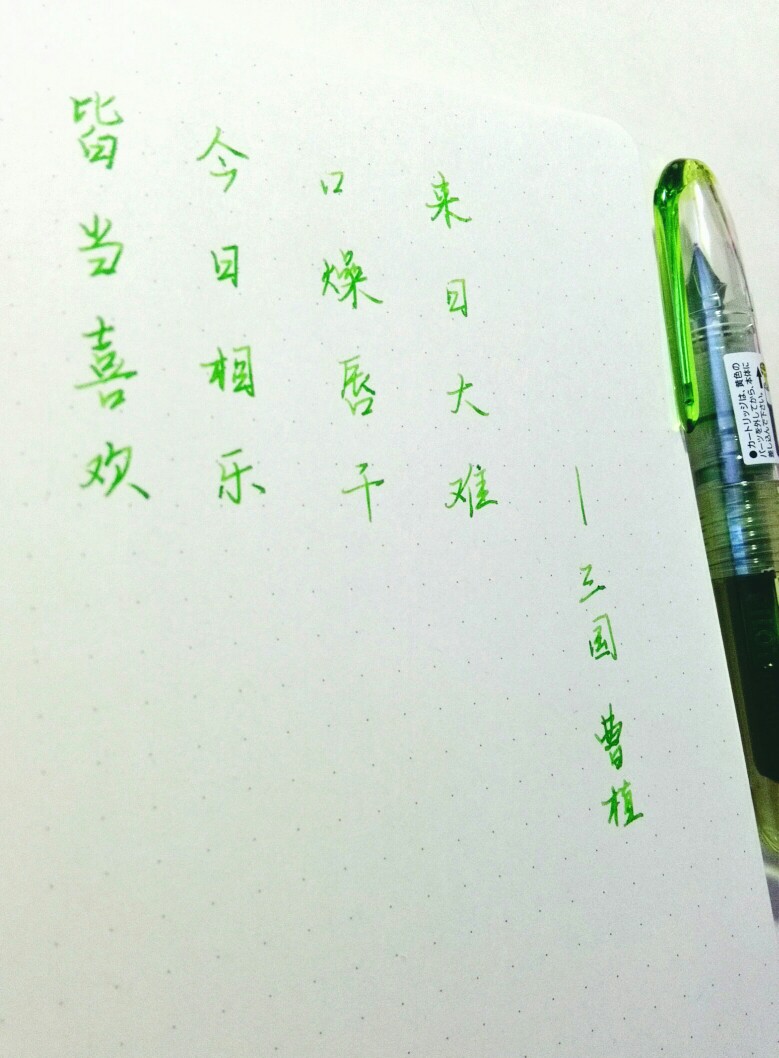 来日大难
口燥唇干
今日相乐
皆当喜欢
—三国 曹植
●カートリッジは、黄色の
パーツを外してから、本体に
差し込んで下さい。